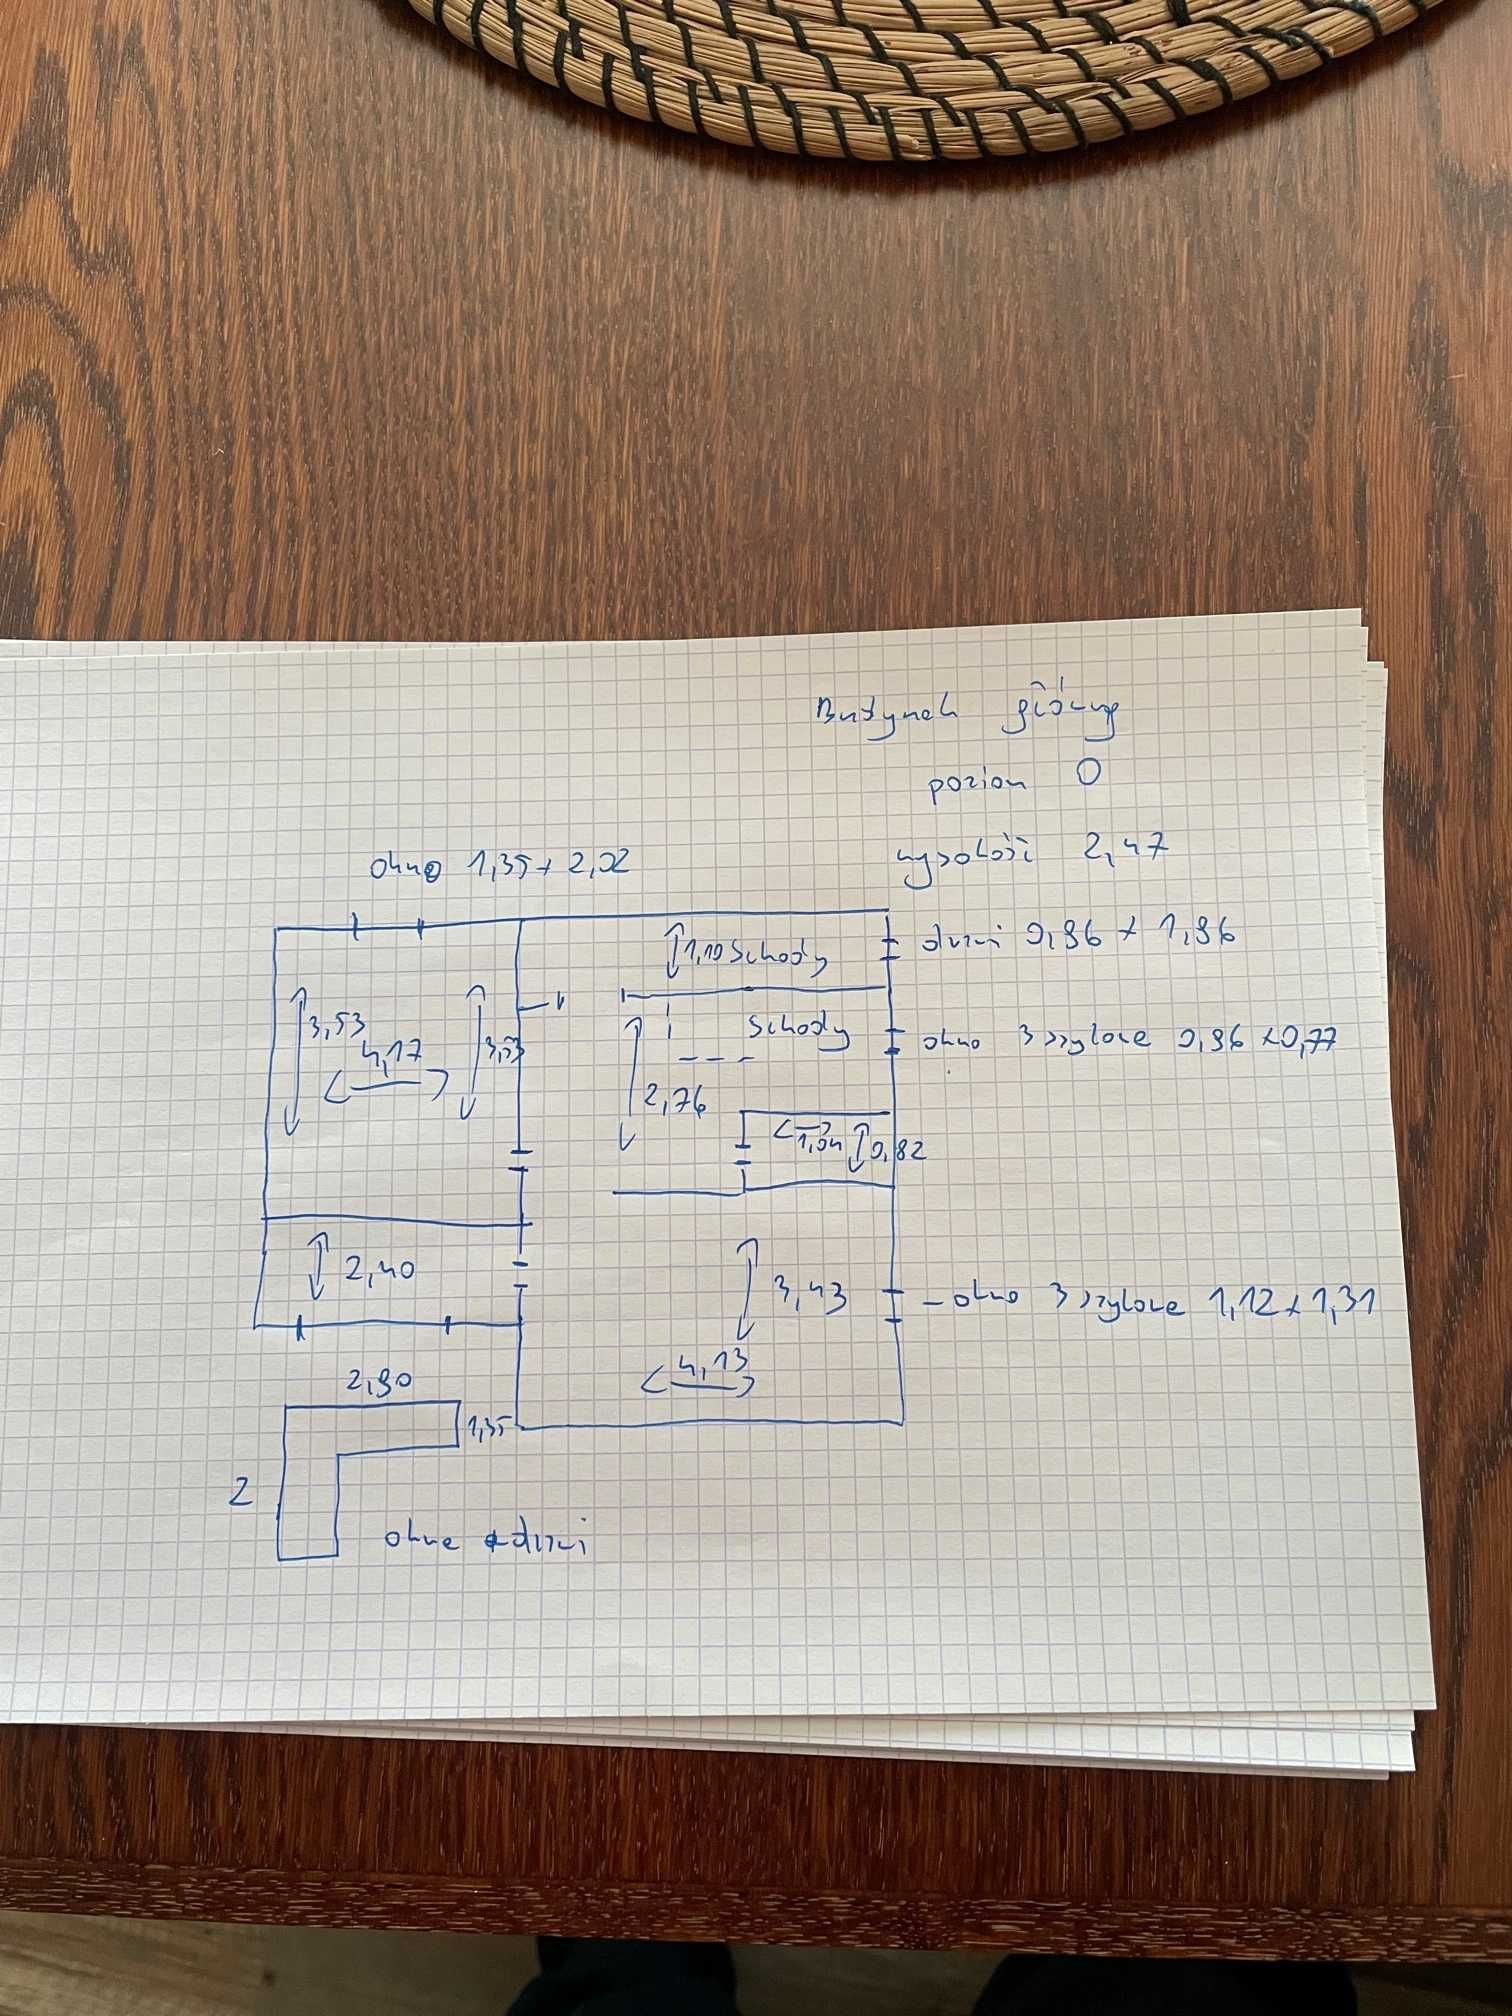 Budynek główny
poziom 0
wysokość 2,47
okno 1,35 x 2,02
1,10 Schody
drzwi 0,96 x 1,96
3,53
4,17
3,53
Schody
okno 3 szylowe 0,96 x 0,77
2,76
1,04
0,82
2,40
3,43
- okno 3 szylowe 1,12 x 1,31
4,13
2,90
1,35
2
okno drzwi